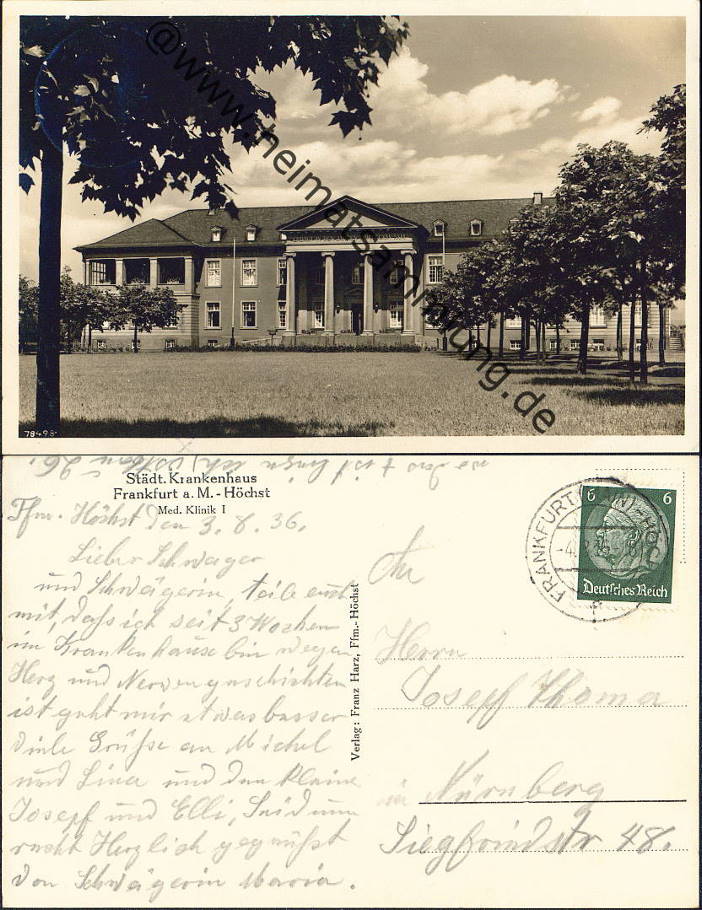 @www.heimatsammlung.de
78498
Städt. Krankenhaus
Frankfurt a. M. - Höchst
Med. Klinik I
Ffm. Höchst den 3.8.36.
Lieber Schwager
und Schwägerin, teile euch
mit, daß ich seit 3 Wochen
im Krankenhause bin wegen
Herz und Nervengeschichten
ist geht mir etwas besser
viele Grüße an Michel
und Lina und den kleine
Josepf und Elli, Seid nun
recht Herzlich gegrüßt
von Schwägerin Maria.
Verlag: Franz Harz, Ffm.-Höchst
FRANKFURT (MAIN)-HÖCHST
6 6
Deutsches Reich
An
Herrn
Josepf Thoma
in Nürnberg
Siegfriedstr 48.